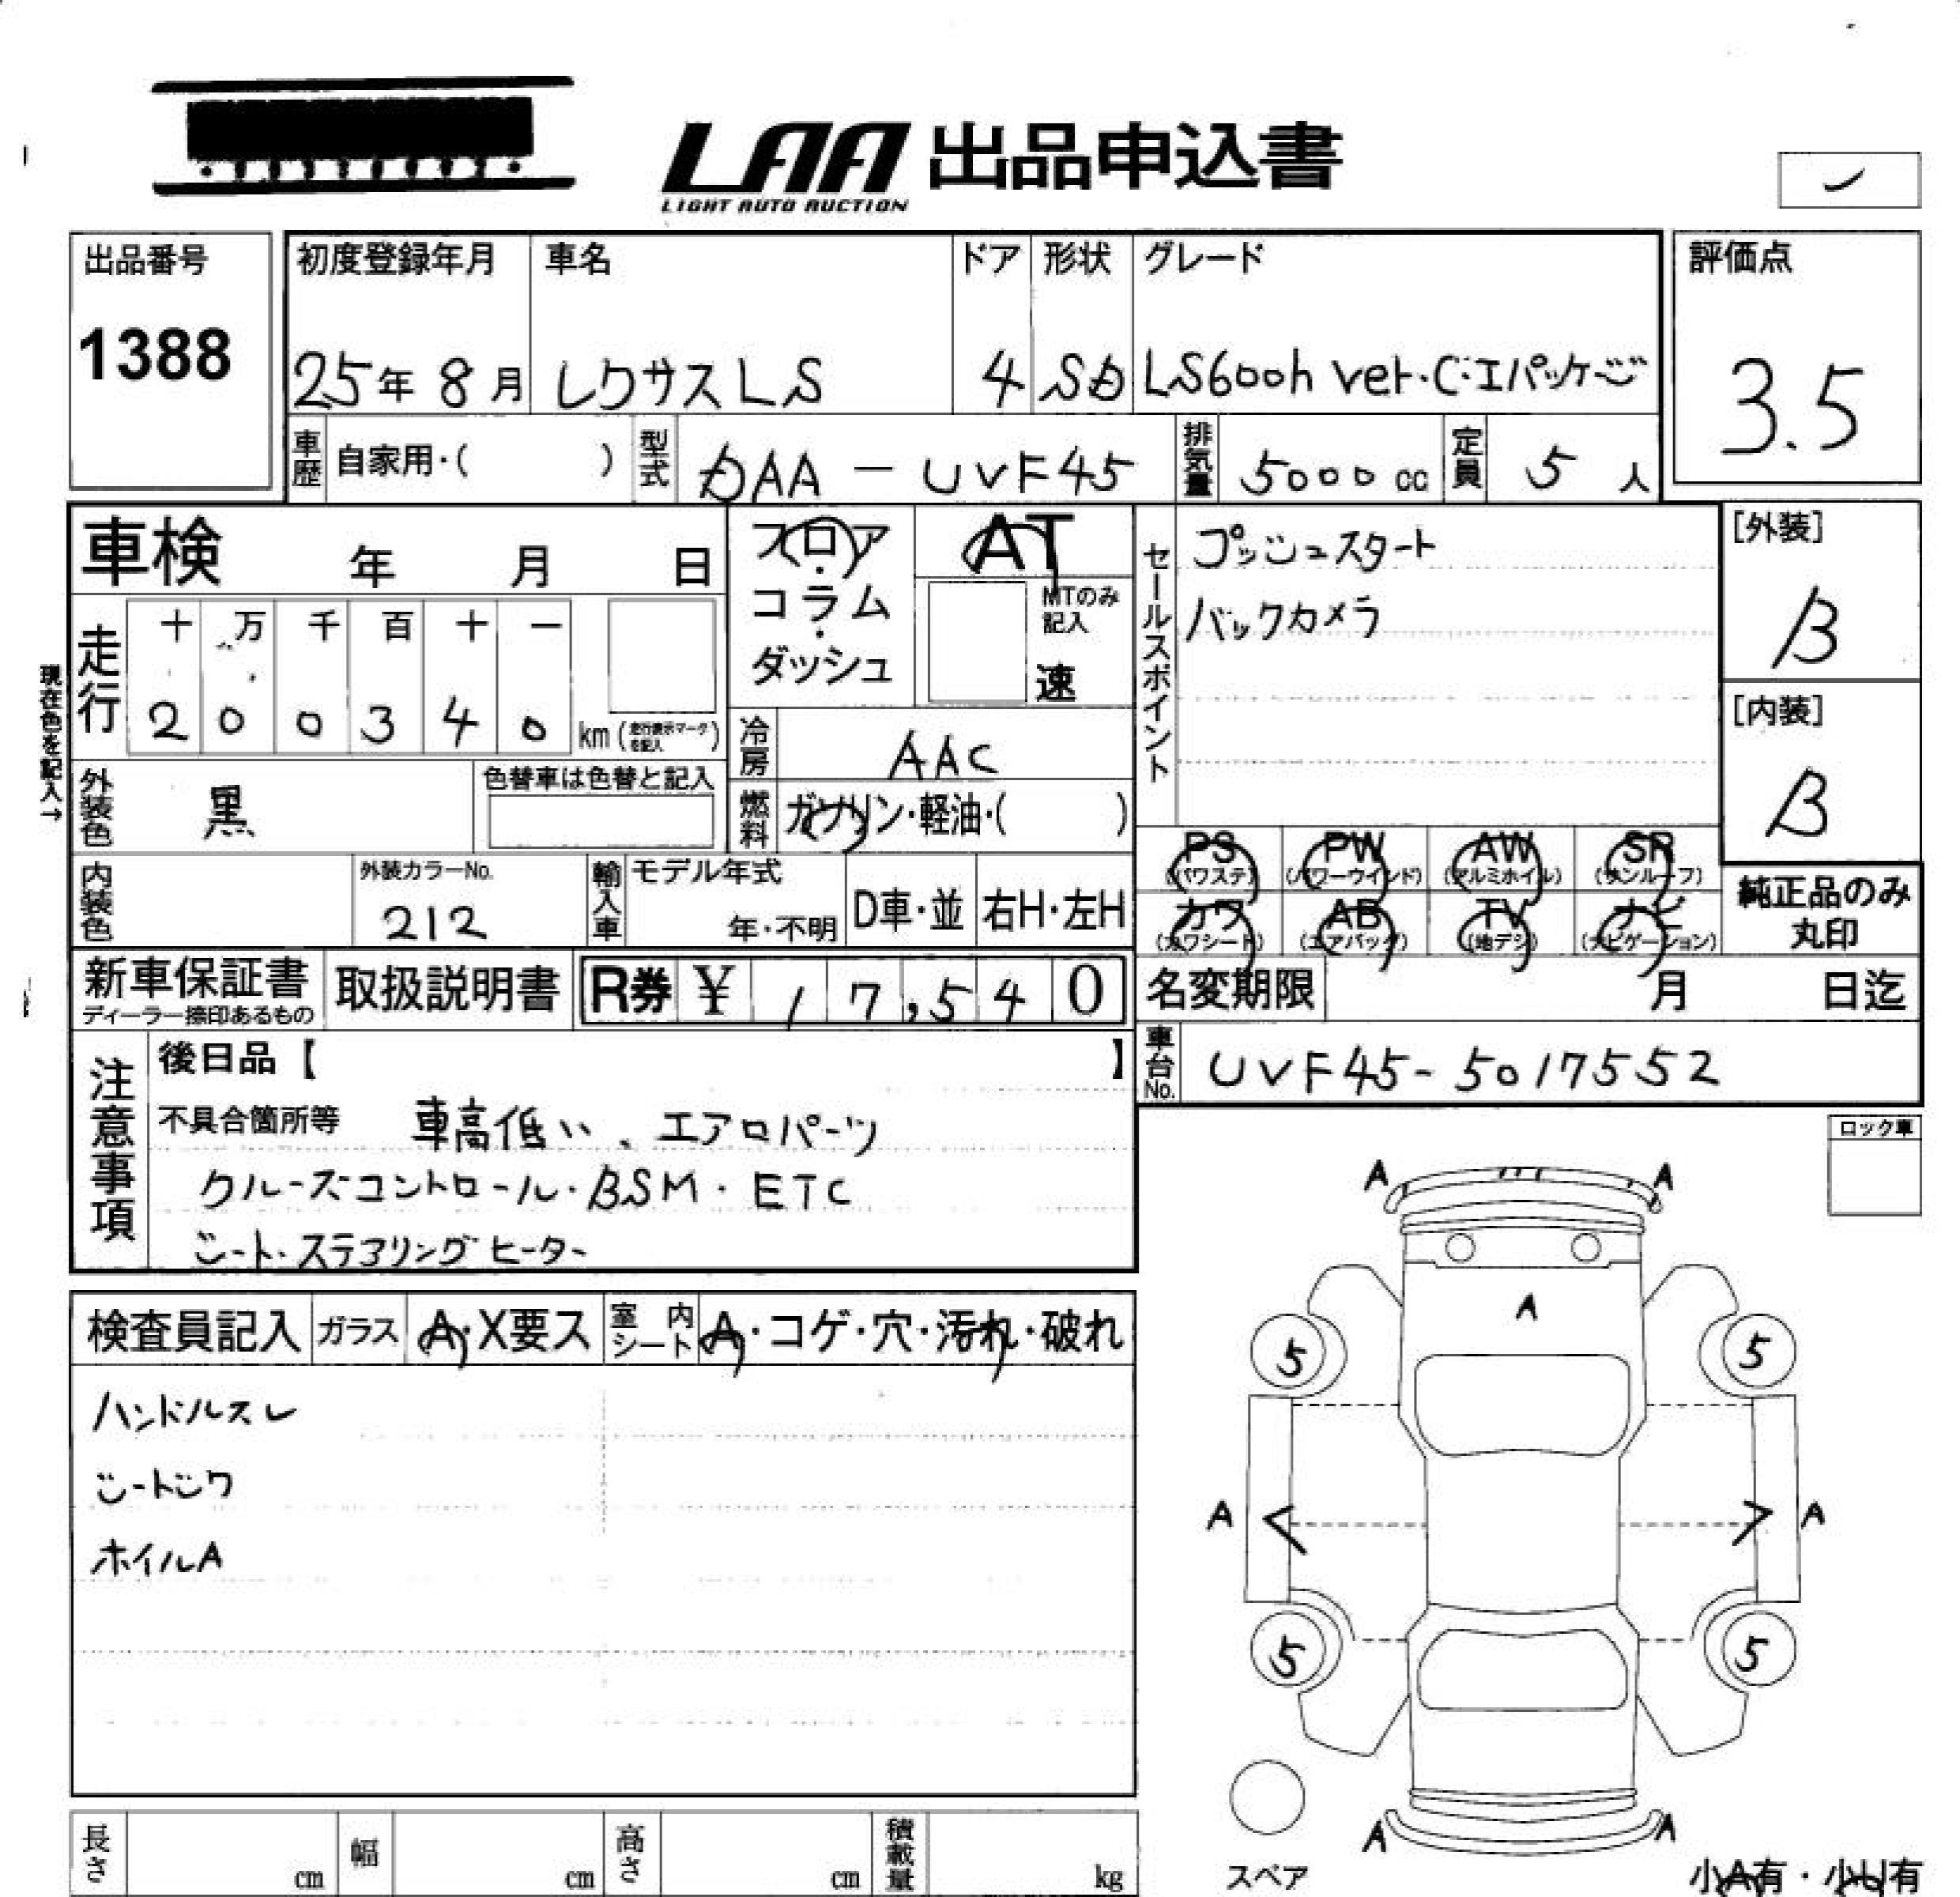 LAA 出品申込書
LIGHT AUTO AUCTION
出品番号
1388
初度登録年月
25年8月
車名
レクサスLS
ドア
4
形状
SD
グレード
LS600h ver.C・Iパッケージ
評価点
3.5
車歴 自家用・( )
型式 DAA-UVF45
排気量 5000cc
定員 5人
車検 年 月 日
フロア・コラム・ダッシュ
AT
MTのみ記入
速
セールスポイント
プッシュスタート
バックカメラ
[外装]
B
[内装]
B
現在色を記入→
走行
十 万 千 百 十 一
2 0 0 3 4 0 km (走行表示マークを記入)
冷房 AAC
外装色 黒
色替車は色替と記入
燃料 ガソリン・軽油・( )
PS (パワステ) PW (パワーウインド) AW (アルミホイル) SR (サンルーフ)
カワ (カワシート) AB (エアバッグ) TV (地デジ) ナビ (ナビゲーション)
純正品のみ丸印
内装色
外装カラーNo.
212
輸入車
モデル年式
年・不明
D車・並
右H・左H
新車保証書
ディーラー捺印あるもの
取扱説明書
R券 ¥ 17,540
名変期限 月 日迄
車台No. UVF45-5017552
注意事項
後日品【 】
不具合箇所等 車高低い、エアロパーツ
クルーズコントロール・BSM・ETC
シート・ステアリングヒーター
ロック車
検査員記入
ガラス A・X要ス
室内シート A・コゲ・穴・汚れ・破れ
ハンドルスレ
シートシワ
ホイルA
A A
A
5 5
A A
5 5
A A
スペア
小A有・小U有
長さ cm
幅 cm
高さ cm
積載量 kg